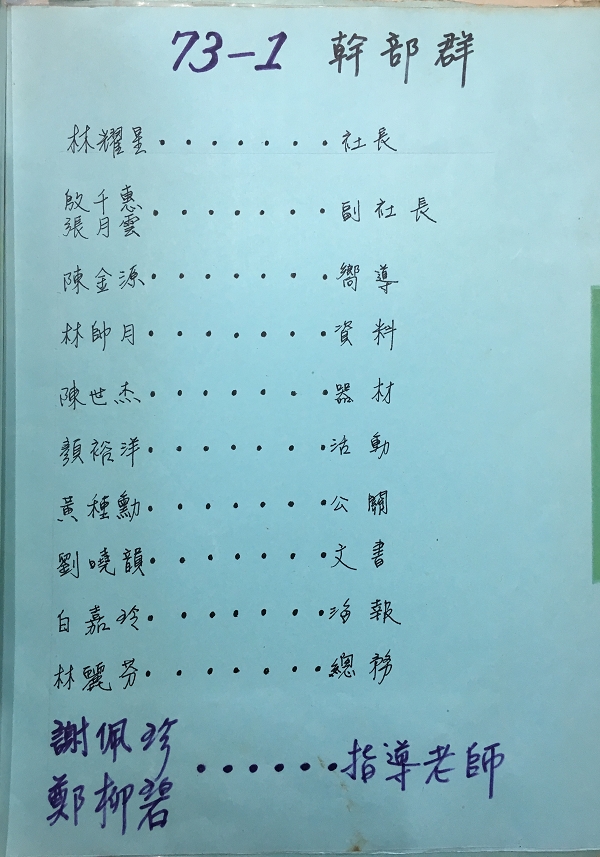 73-1 幹部群
林耀星·······社長
殷千惠
張月雲·······副社長
陳金源·······嚮導
林帥月·······資料
陳世杰·······器材
顏裕洋·······活動
黃種勳·······公關
劉曉韻·······文書
白嘉玲·······海報
林麗芬·······總務
謝佩珍
鄭柳碧······指導老師